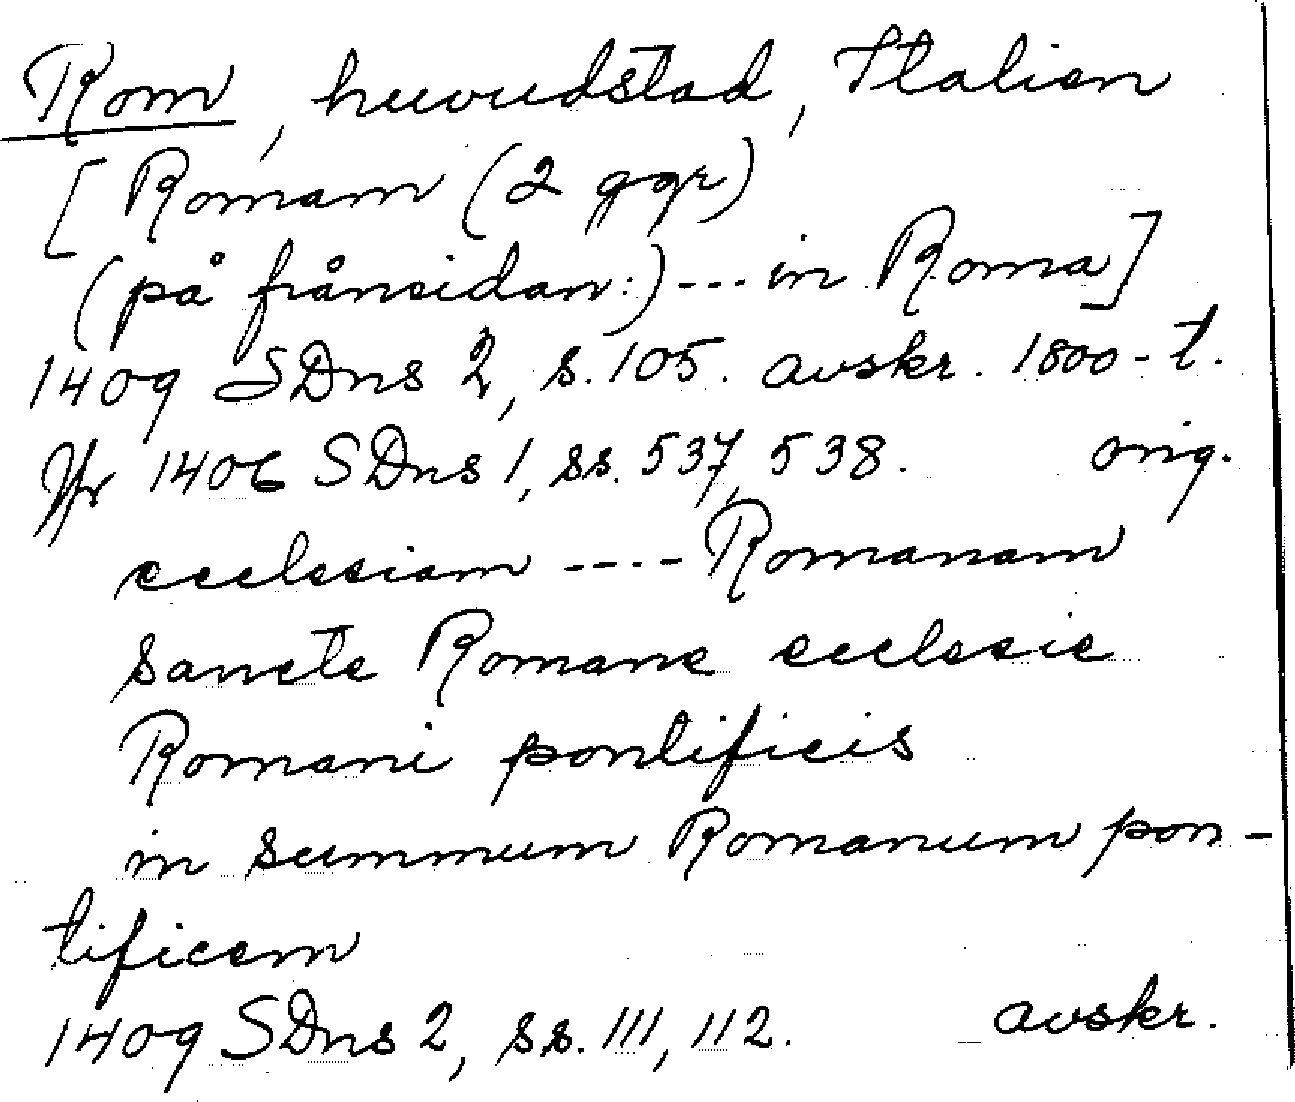 Rom, huvudstad, Italien
[Romam (2 ggr)
(på frånsidan:) --- in Roma]
1409 SDns 2, s. 105. avskr. 1800-t.
Jfr 1406 SDns 1, ss. 537, 538. orig.
ecclesiam ---- Romanam
sancte Romane ecclesie
Romani pontificis
in summum Romanum pon-
tificem
1409 SDns 2, ss. 111, 112. avskr.